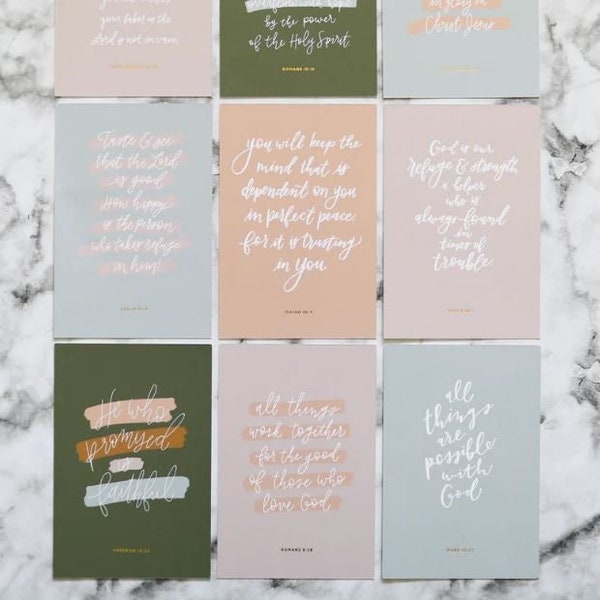 your labor in the
Lord is not in vain.
hope
by the power
of the Holy Spirit.
ROMANS 15:13
in glory in
Christ Jesus
Taste & see
that the Lord
is good
How happy
is the person
who takes refuge
in him!
PSALM 34:8
you will keep the
mind that is
dependent on you
in perfect peace.
for it is trusting
in you
ISAIAH 26:3
God is our
refuge & strength
a helper
who is
always found
in
times of
trouble.
PSALM 46:1
He who
promised
is
faithful
HEBREWS 10:23
all things
work together
for the good
of those who
love God
ROMANS 8:28
all
things
are
possible
with
God
MARK 10:27